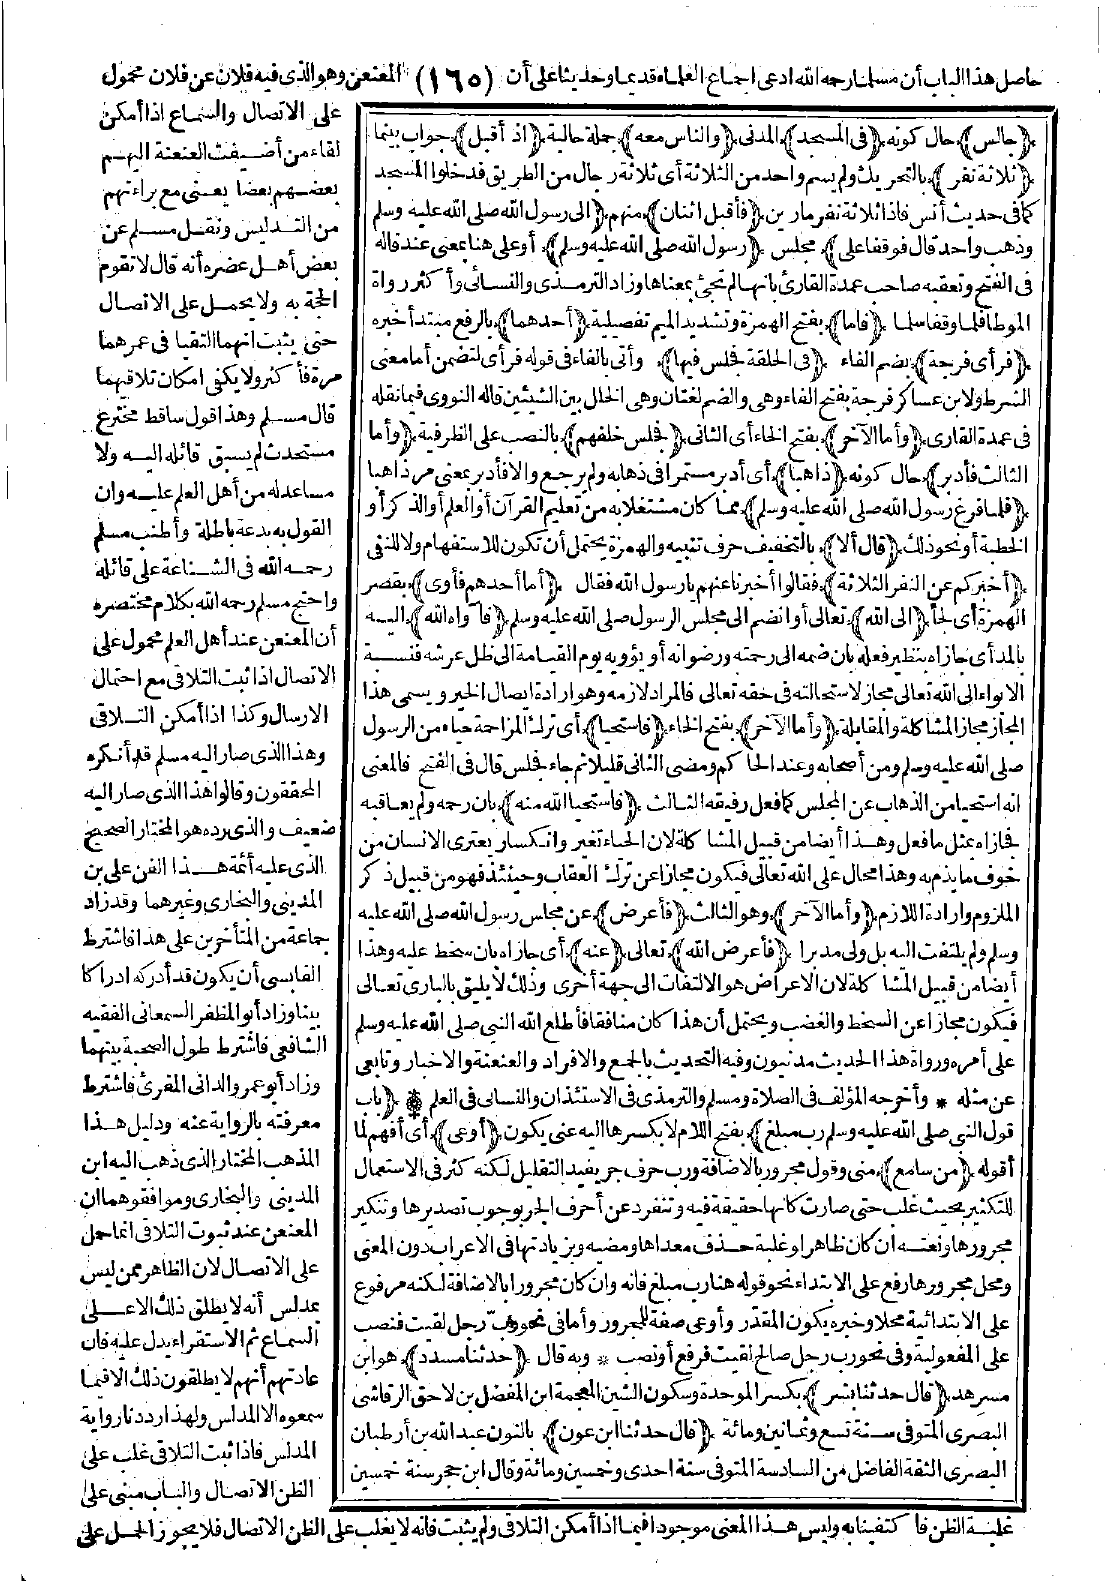 حاصل هذا الباب أن مسلما رحمه الله ادعى اجماع العلماء قديما وحديثا على أن (١٦٥) المعنعن وهو الذى فيه فلان عن فلان محمول
﴿جالس﴾ حال كونه ﴿فى المسجد﴾ المدنى ﴿والناس معه﴾ جملة حالية ﴿اذ أقبل﴾ جواب بينما
﴿ثلاثة نفر﴾ بالتحريك ولم يسم واحد من الثلاثة أى ثلاثة رجال من الطريق فدخلوا المسجد
كما فى حديث أنس فاذا ثلاثة نفر مارين ﴿فأقبل اثنان﴾ منهم ﴿الى رسول الله صلى الله عليه وسلم
وذهب واحد قال فوقفا على﴾ مجلس ﴿رسول الله صلى الله عليه وسلم﴾ أو على هنا بمعنى عند قاله
فى الفتح وتعقبه صاحب عمدة القارئ بانها لم تجئ بمعناها وزاد الترمذى والنسائى وأكثر رواة
الموطا فلما وقفا سلما ﴿فاما﴾ بفتح الهمزة وتشديد الميم تفصيلية ﴿أحدهما﴾ بالرفع مبتدأ خبره
﴿فرأى فرجة﴾ بضم الفاء ﴿فى الحلقة فجلس فيها﴾ وأتى بالفاء فى قوله فرأى لتضمن أما معنى
الشرط ولابن عساكر فرجة بفتح الفاء وهى والضم لغتان وهى الخلل بين الشيئين قاله النووى فيما نقله
فى عمدة القارى ﴿وأما الآخر﴾ بفتح الخاء أى الثانى ﴿فجلس خلفهم﴾ بالنصب على الظرفية ﴿وأما
الثالث فأدبر﴾ حال كونه ﴿ذاهبا﴾ أى أدبر مستمرا فى ذهابه ولم يرجع والا فأدبر بمعنى مر ذاهبا
﴿فلما فرغ رسول الله صلى الله عليه وسلم﴾ مما كان مشتغلا به من تعليم القرآن أو العلم أو الذكر أو
الخطبة أو نحو ذلك ﴿قال ألا﴾ بالتخفيف حرف تنبيه والهمزة يحتمل أن تكون للاستفهام ولا للنفى
﴿أخبركم عن النفر الثلاثة﴾ فقالوا أخبرنا عنهم يارسول الله فقال ﴿أما أحدهم فأوى﴾ بقصر
الهمزة أى لجأ ﴿الى الله﴾ تعالى أو انضم الى مجلس الرسول صلى الله عليه وسلم ﴿فآواه الله﴾ اليه
بالمد أى جازاه بنظير فعله بان ضمه الى رحمته ورضوانه أو يؤويه يوم القيامة الى ظل عرشه فنسبة
الايواء الى الله تعالى مجاز لاستحالته فى حقه تعالى فالمراد لازمه وهو ارادة ايصال الخير ويسمى هذا
المجاز مجاز المشاكلة والمقابلة ﴿وأما الآخر﴾ بفتح الخاء ﴿فاستحيا﴾ أى ترك المزاحمة حياء من الرسول
صلى الله عليه وسلم ومن أصحابه وعند الحاكم ومضى الثانى قليلا ثم جاء فجلس قال فى الفتح فالمعنى
انه استحيا من الذهاب عن المجلس كما فعل رفيقه الثالث ﴿فاستحيا الله منه﴾ بان رحمه ولم يعاقبه
فجازاه بمثل ما فعل وهذا أيضا من قبيل المشاكلة لان الحياء تغير وانكسار يعترى الانسان من
خوف ما يذم به وهذا محال على الله تعالى فيكون مجازا عن ترك العقاب وحينئذ فهو من قبيل ذكر
الملزوم وارادة اللازم ﴿وأما الآخر﴾ وهو الثالث ﴿فأعرض﴾ عن مجلس رسول الله صلى الله عليه
وسلم ولم يلتفت اليه بل ولى مدبرا ﴿فأعرض الله﴾ تعالى ﴿عنه﴾ أى جازاه بان سخط عليه وهذا
أيضا من قبيل المشاكلة لان الاعراض هو الالتفات الى جهة أخرى وذلك لا يليق بالبارى تعالى
فيكون مجازا عن السخط والغضب ويحتمل أن هذا كان منافقا فأطلع الله النبى صلى الله عليه وسلم
على أمره ورواة هذا الحديث مدنيون وفيه التحديث بالجمع والافراد والعنعنة والاخبار وتابعى
عن مثله * وأخرجه المؤلف فى الصلاة ومسلم والترمذى فى الاستئذان والنسائى فى العلم * ﴿باب
قول النبى صلى الله عليه وسلم رب مبلغ﴾ بفتح اللام لا بكسرها اليه عنى يكون ﴿أوعى﴾ أى أفهم لما
أقوله ﴿من سامع﴾ منى وقول مجرور بالاضافة ورب حرف جر يفيد التقليل لكنه كثر فى الاستعمال
للتكثير بحيث غلب حتى صارت كانها حقيقة فيه وتنفرد عن أحرف الجر بوجوب تصديرها وتنكير
مجرورها ونعته ان كان ظاهرا وغلبة حذف معداها ومضيه وبزيادتها فى الاعراب دون المعنى
ومحل مجرورها رفع على الابتداء نحو قوله هنا رب مبلغ فانه وان كان مجرورا بالاضافة لكنه مرفوع
على الابتدائية محلا وخبره يكون المقدر وأوعى صفة للمجرور وأما فى نحو رب رجل لقيت فنصب
على المفعولية وفى نحو رب رجل صالح لقيت فرفع أو نصب * وبه قال ﴿حدثنا مسدد﴾ هو ابن
مسرهد ﴿قال حدثنا بشر﴾ بكسر الموحدة وسكون الشين المعجمة ابن المفضل بن لاحق الرقاشى
البصرى المتوفى سنة تسع وثمانين ومائة ﴿قال حدثنا ابن عون﴾ بالنون عبد الله بن أرطبان
البصرى الثقة الفاضل من السادسة المتوفى سنة احدى وخمسين ومائة وقال ابن حجر سنة خمسين
على الاتصال والسماع اذا أمكن
لقاء من أضيفت العنعنة اليهم
بعضهم بعضا يعنى مع براءتهم
من التدليس ونقل مسلم عن
بعض أهل عصره أنه قال لا تقوم
الحجة به ولا يحمل على الاتصال
حتى يثبت انهما التقيا فى عمرهما
مرة فأكثر ولا يكفى امكان تلاقيهما
قال مسلم وهذا قول ساقط مخترع
مستحدث لم يسبق قائله اليه ولا
مساعد له من أهل العلم عليه وان
القول به بدعة باطلة وأطنب مسلم
رحمه الله فى الشناعة على قائله
واحتج مسلم رحمه الله بكلام مختصره
أن المعنعن عند أهل العلم محمول على
الاتصال اذا ثبت التلاقى مع احتمال
الارسال وكذا اذا أمكن التلاقى
وهذا الذى صار اليه مسلم قد أنكره
المحققون وقالوا هذا الذى صار اليه
ضعيف والذى رده هو المختار الصحيح
الذى عليه أئمة هذا الفن على بن
المدينى والبخارى وغيرهما وقد زاد
جماعة من المتأخرين على هذا فاشترط
القابسى أن يكون قد أدركه ادراكا
بينا وزاد أبو المظفر السمعانى الفقيه
الشافعى فاشترط طول الصحبة بينهما
وزاد أبو عمرو الدانى المقرئ فاشترط
معرفته بالرواية عنه ودليل هذا
المذهب المختار الذى ذهب اليه ابن
المدينى والبخارى وموافقوهما ان
المعنعن عند ثبوت التلاقى انما حمل
على الاتصال لان الظاهر ممن ليس
بمدلس أنه لا يطلق ذلك الا على
السماع ثم الاستقراء يدل عليه فان
عادتهم أنهم لا يطلقون ذلك الا فيما
سمعوه الا المدلس ولهذا رددنا رواية
المدلس فاذا ثبت التلاقى غلب على
الظن الاتصال والباب مبنى على
غلبة الظن فاكتفينا به وليس هذا المعنى موجودا فيما اذا أمكن التلاقى ولم يثبت فانه لا يغلب على الظن الاتصال فلا يجوز الحمل على